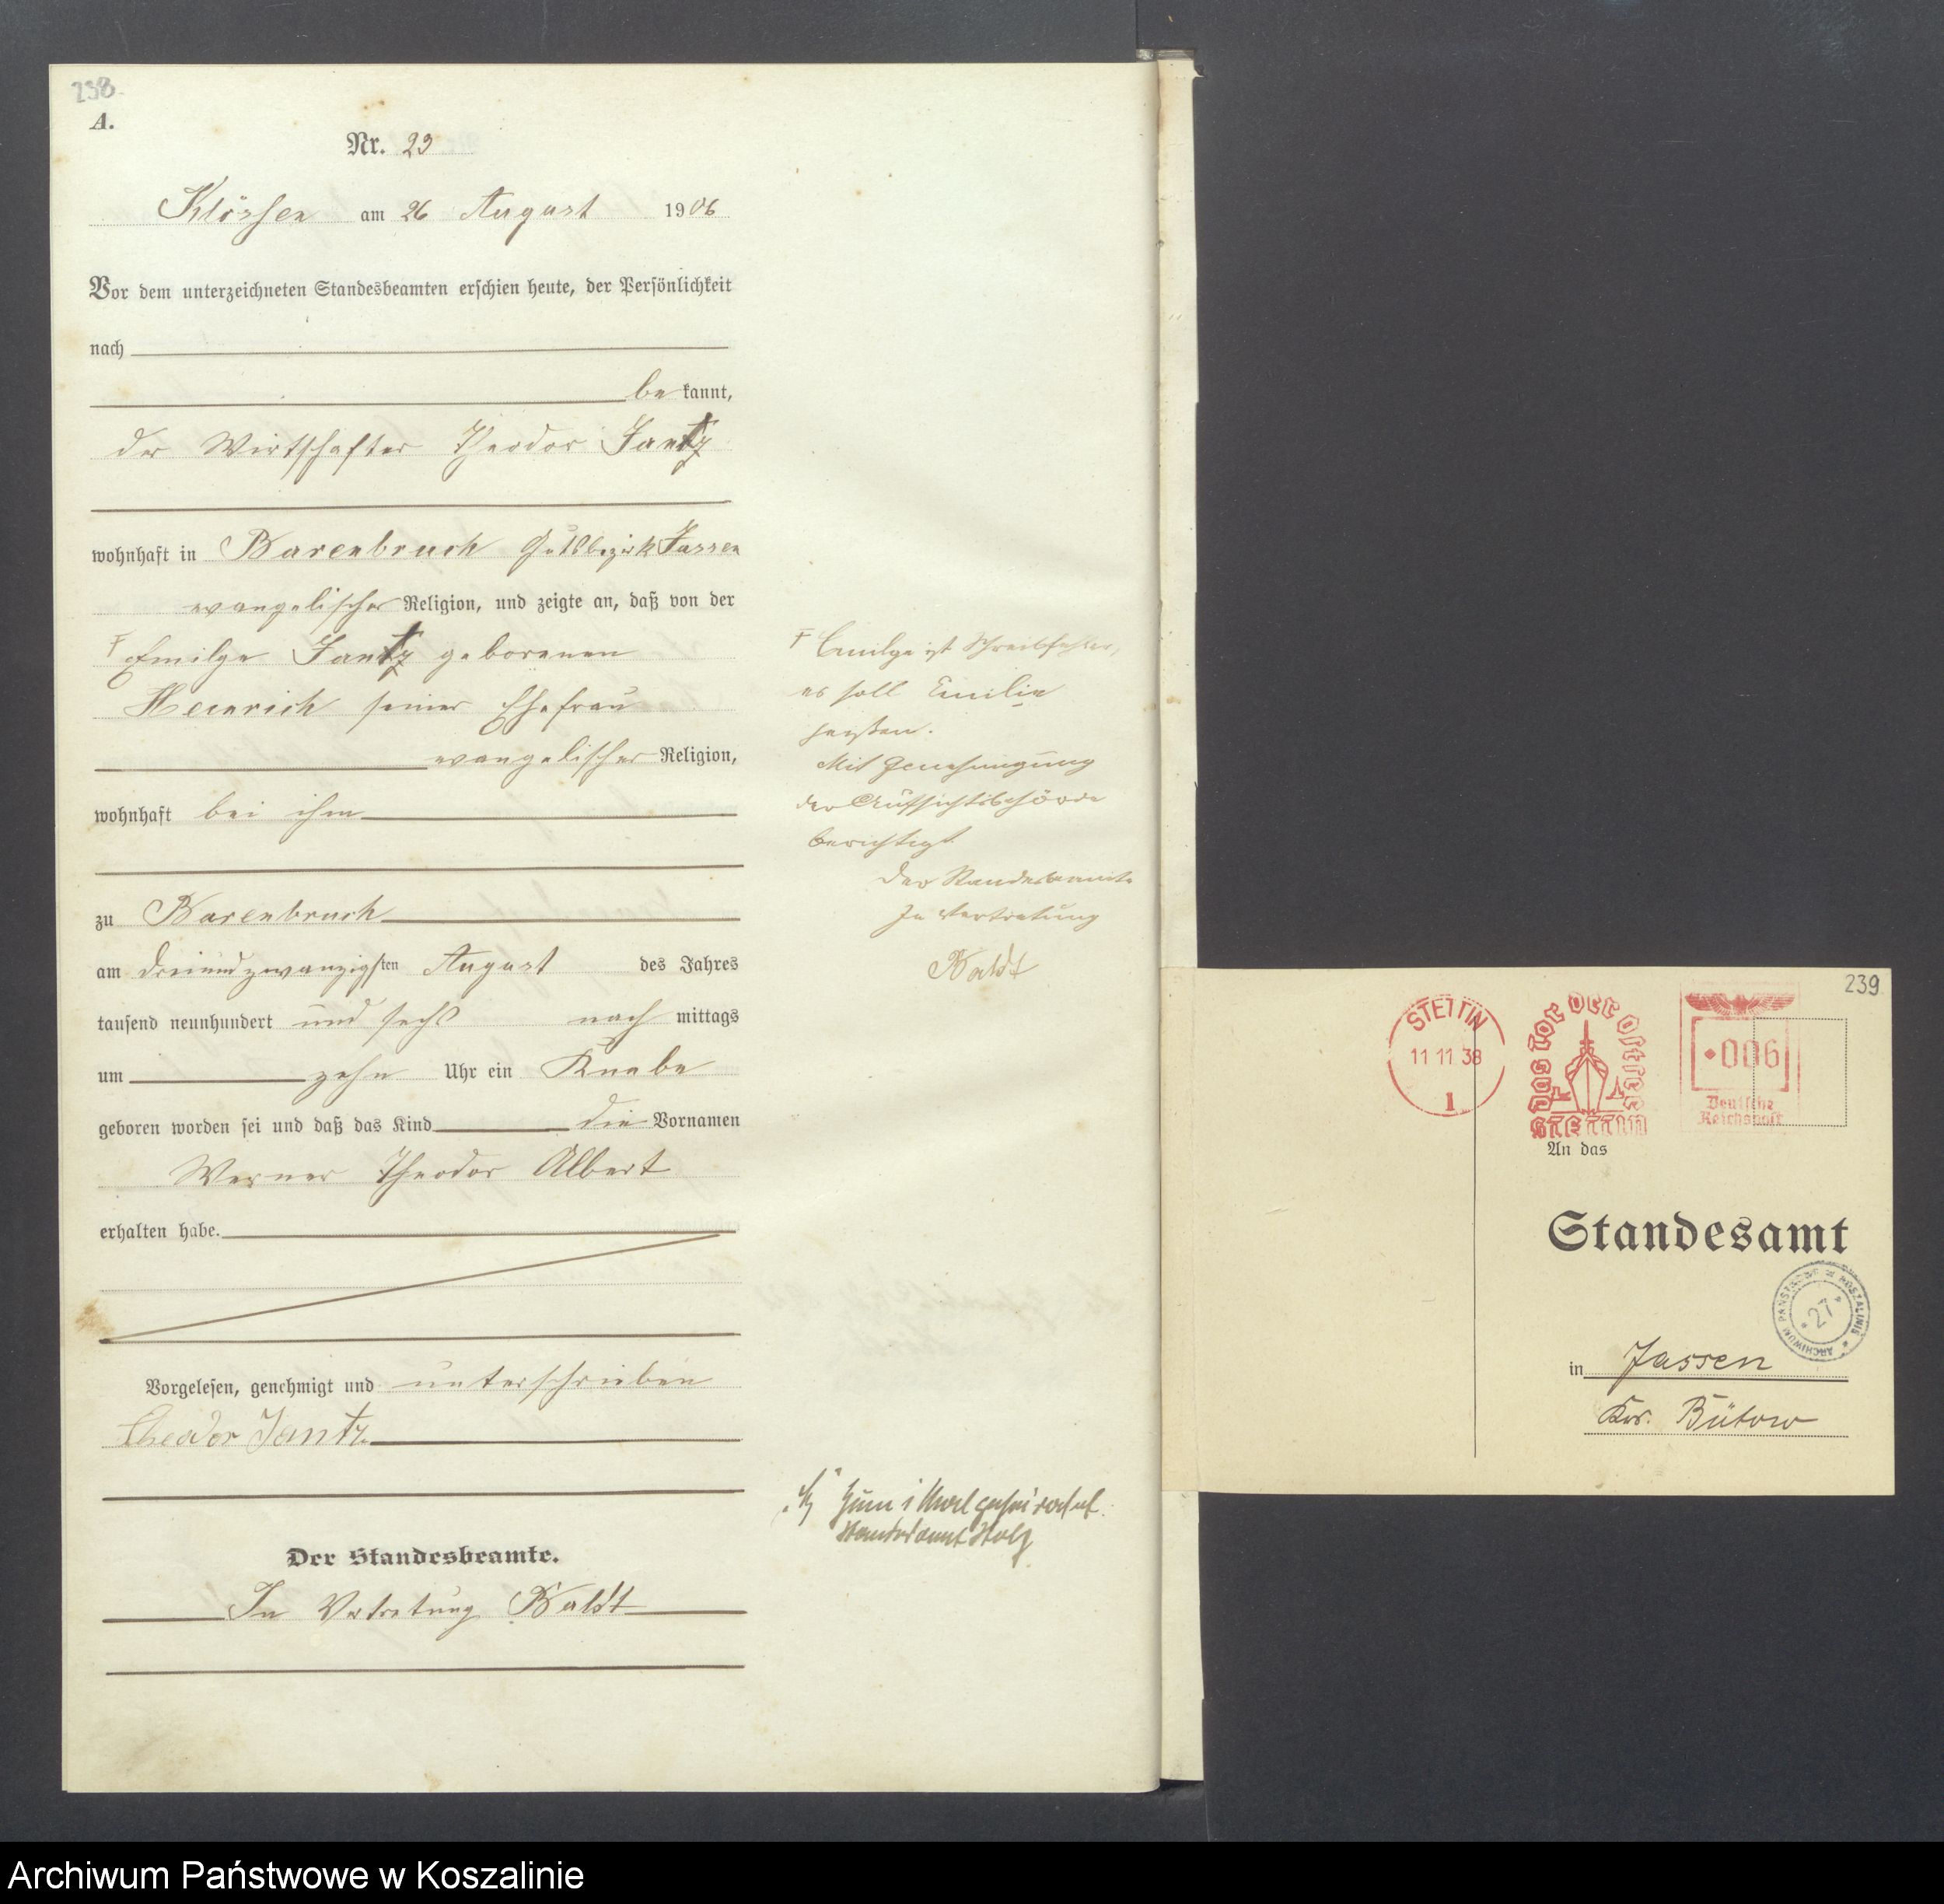 238.
A.
Nr. 23
Klössen am 26 August 1906
Vor dem unterzeichneten Standesbeamten erschien heute, der Persönlichkeit
nach
be kannt,
der Wirtschafter Theodor Jantz
wohnhaft in Barenbruch Gutsbezirk Jassen
evangelischer Religion, und zeigte an, daß von der
Emilge Jantz geborenen
Heinrich seiner Ehefrau
evangelischer Religion,
wohnhaft bei ihm
zu Barenbruch
am dreiundzwanzigsten August des Jahres
tausend neunhundert und sechs nach mittags
um zehn Uhr ein Knabe
geboren worden sei und daß das Kind die Vornamen
Werner Theodor Albert
erhalten habe.
Vorgelesen, genehmigt und unterschrieben
Theodor Jantz
Der Standesbeamte.
In Vertretung Baldt
Emilge ist Schreibfehler,
es soll Emilie
heißen.
Mit Genehmigung
der Aufsichtsbehörde
berichtigt
Der Standesbeamte
In Vertretung
Baldt
Zum 1 Mal geheiratet
Standesamt Stolp
239
STETTIN
11 11 38
1
Das Tor der Ostsee
STETTIN
006
Deutsche
Reichspost
An das
Standesamt
ARCHIWUM PAŃSTWOWE W KOSZALINIE
27
in Jassen
Krs. Bütow
Archiwum Państwowe w Koszalinie